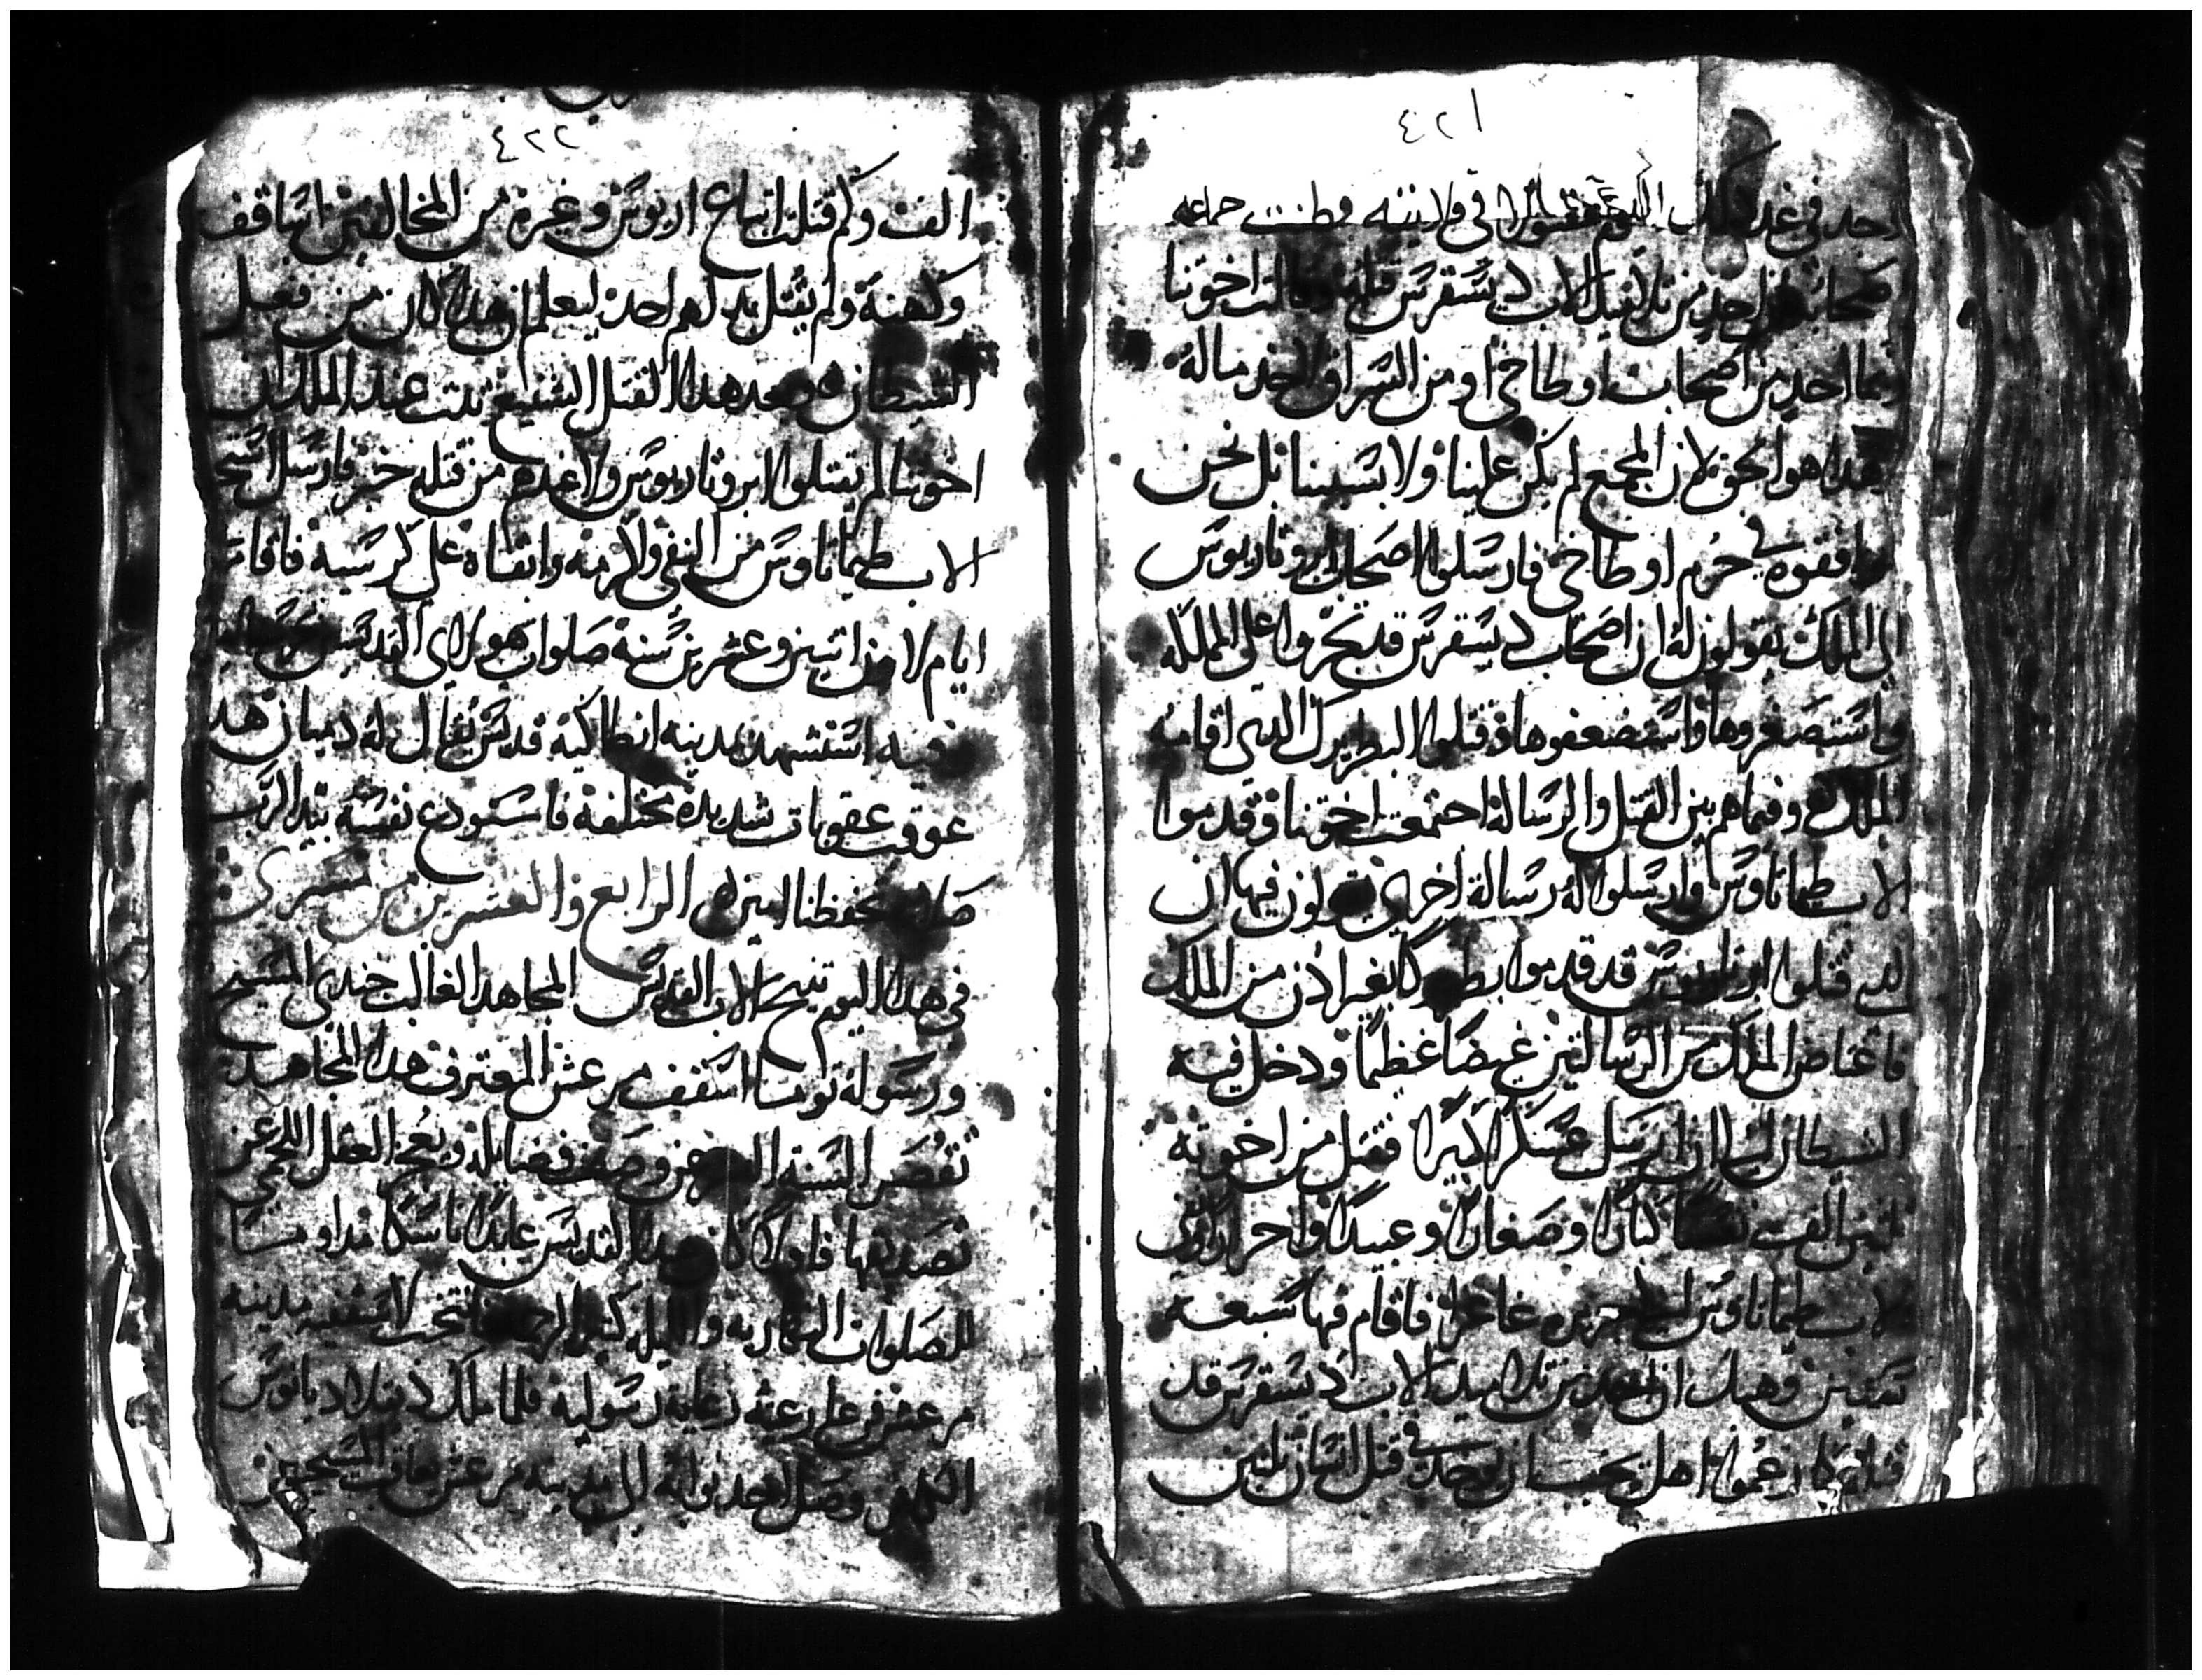 ٤٢١
وجد في غد ذلك اليوم مقتولا في قلايته وظنت جماعه
اصحابه ان احد من تلاميذ الاب ديسقرس قتله وقالت اخوتنا
بما احد من اصحاب اوطاخي او من السراق لاخذ ماله
هذا هو الحق لان المجمع لم يكن علينا ولا بسببنا بل نحن
وافقوه في حرم اوطاخي فارسلوا اصحاب ابروتاريوس
الى الملك يقولون له ان اصحاب ديسقرس قد تجروا على المملكه
واستصغروها واستضعفوها وقتلوا البطريرك الدي اقامه
الملك وفيما هم بين القتل والرسالة اجتمعت اخوتنا وقدموا
الاب طيماتاوس وارسلوا له رسالة اخرى يقولون فيها ان
الدي قتلوا ابروتاريوس قد قدموا بطركا بغير ادن من الملك
فاغتاض الملك من الرسالتين غيضا عظيما ودخل فيه
الشيطان الى ان ارسل عسكرا كبيرا فقتل من اخوته
تلتين الف نفسا كبارا وصغارا وعبيدا واحرارا ونفى
الاب طيماتاوس الى جزيره غاغرا فاقام فيها سبعة
سنين وهبك ان احد من تلاميد الاب ديسقرس قد
قتله كما زعموا اهل يجب ان يوخد في قتل انسان تلتين
٤٢٢
الف وكم قتلت اتباع اريوس وغيره من المخالفين اساقفه
وكهنة ولم يقتل بدلهم احد ليعلم ان هدا كان من فعل
الشيطان وبعد هدا القتل الشنيع تبت عند الملك ان
اخوتنا لم يقتلوا ابروتاريوس ولا عندهم من قتله خبر فارسل استحضر
الاب طيماتاوس من النفي واكرمه وابقاه على كرسيه فاقام
ايام لاون اتنين وعشرين سنة صلوات هولاي القديسين تحرسنا امين
وفيه استشهد بمدينه انطاكية قديس يقال له دميان هدا
عوقب عقوبات شديدة مختلفة فاستودع نفسه بيد الرب
صلاته تحفظنا امين الرابع والعشرين من مسرى
في هدا اليوم تنيح الاب القديس المجاهد الغالب جندي المسيح
ورسوله توما اسقف مرعش المعترف هدا المجاهد
تقصر السنة عن وصف فضايله ويعجز العقل اللحمي عن
تصديقها فاولا كان هدا القديس عابدا ناسكا مداوما
للصلوات النهاريه والليله كثير الرحمه فانتخب لاسقفيه مدينه
مرعش فرعى رعيته رعاية رسولية فلما ملك دقلاديانوس
الكافر وصل احد نوابه الى مدينه مرعش عاقب المسيحيين